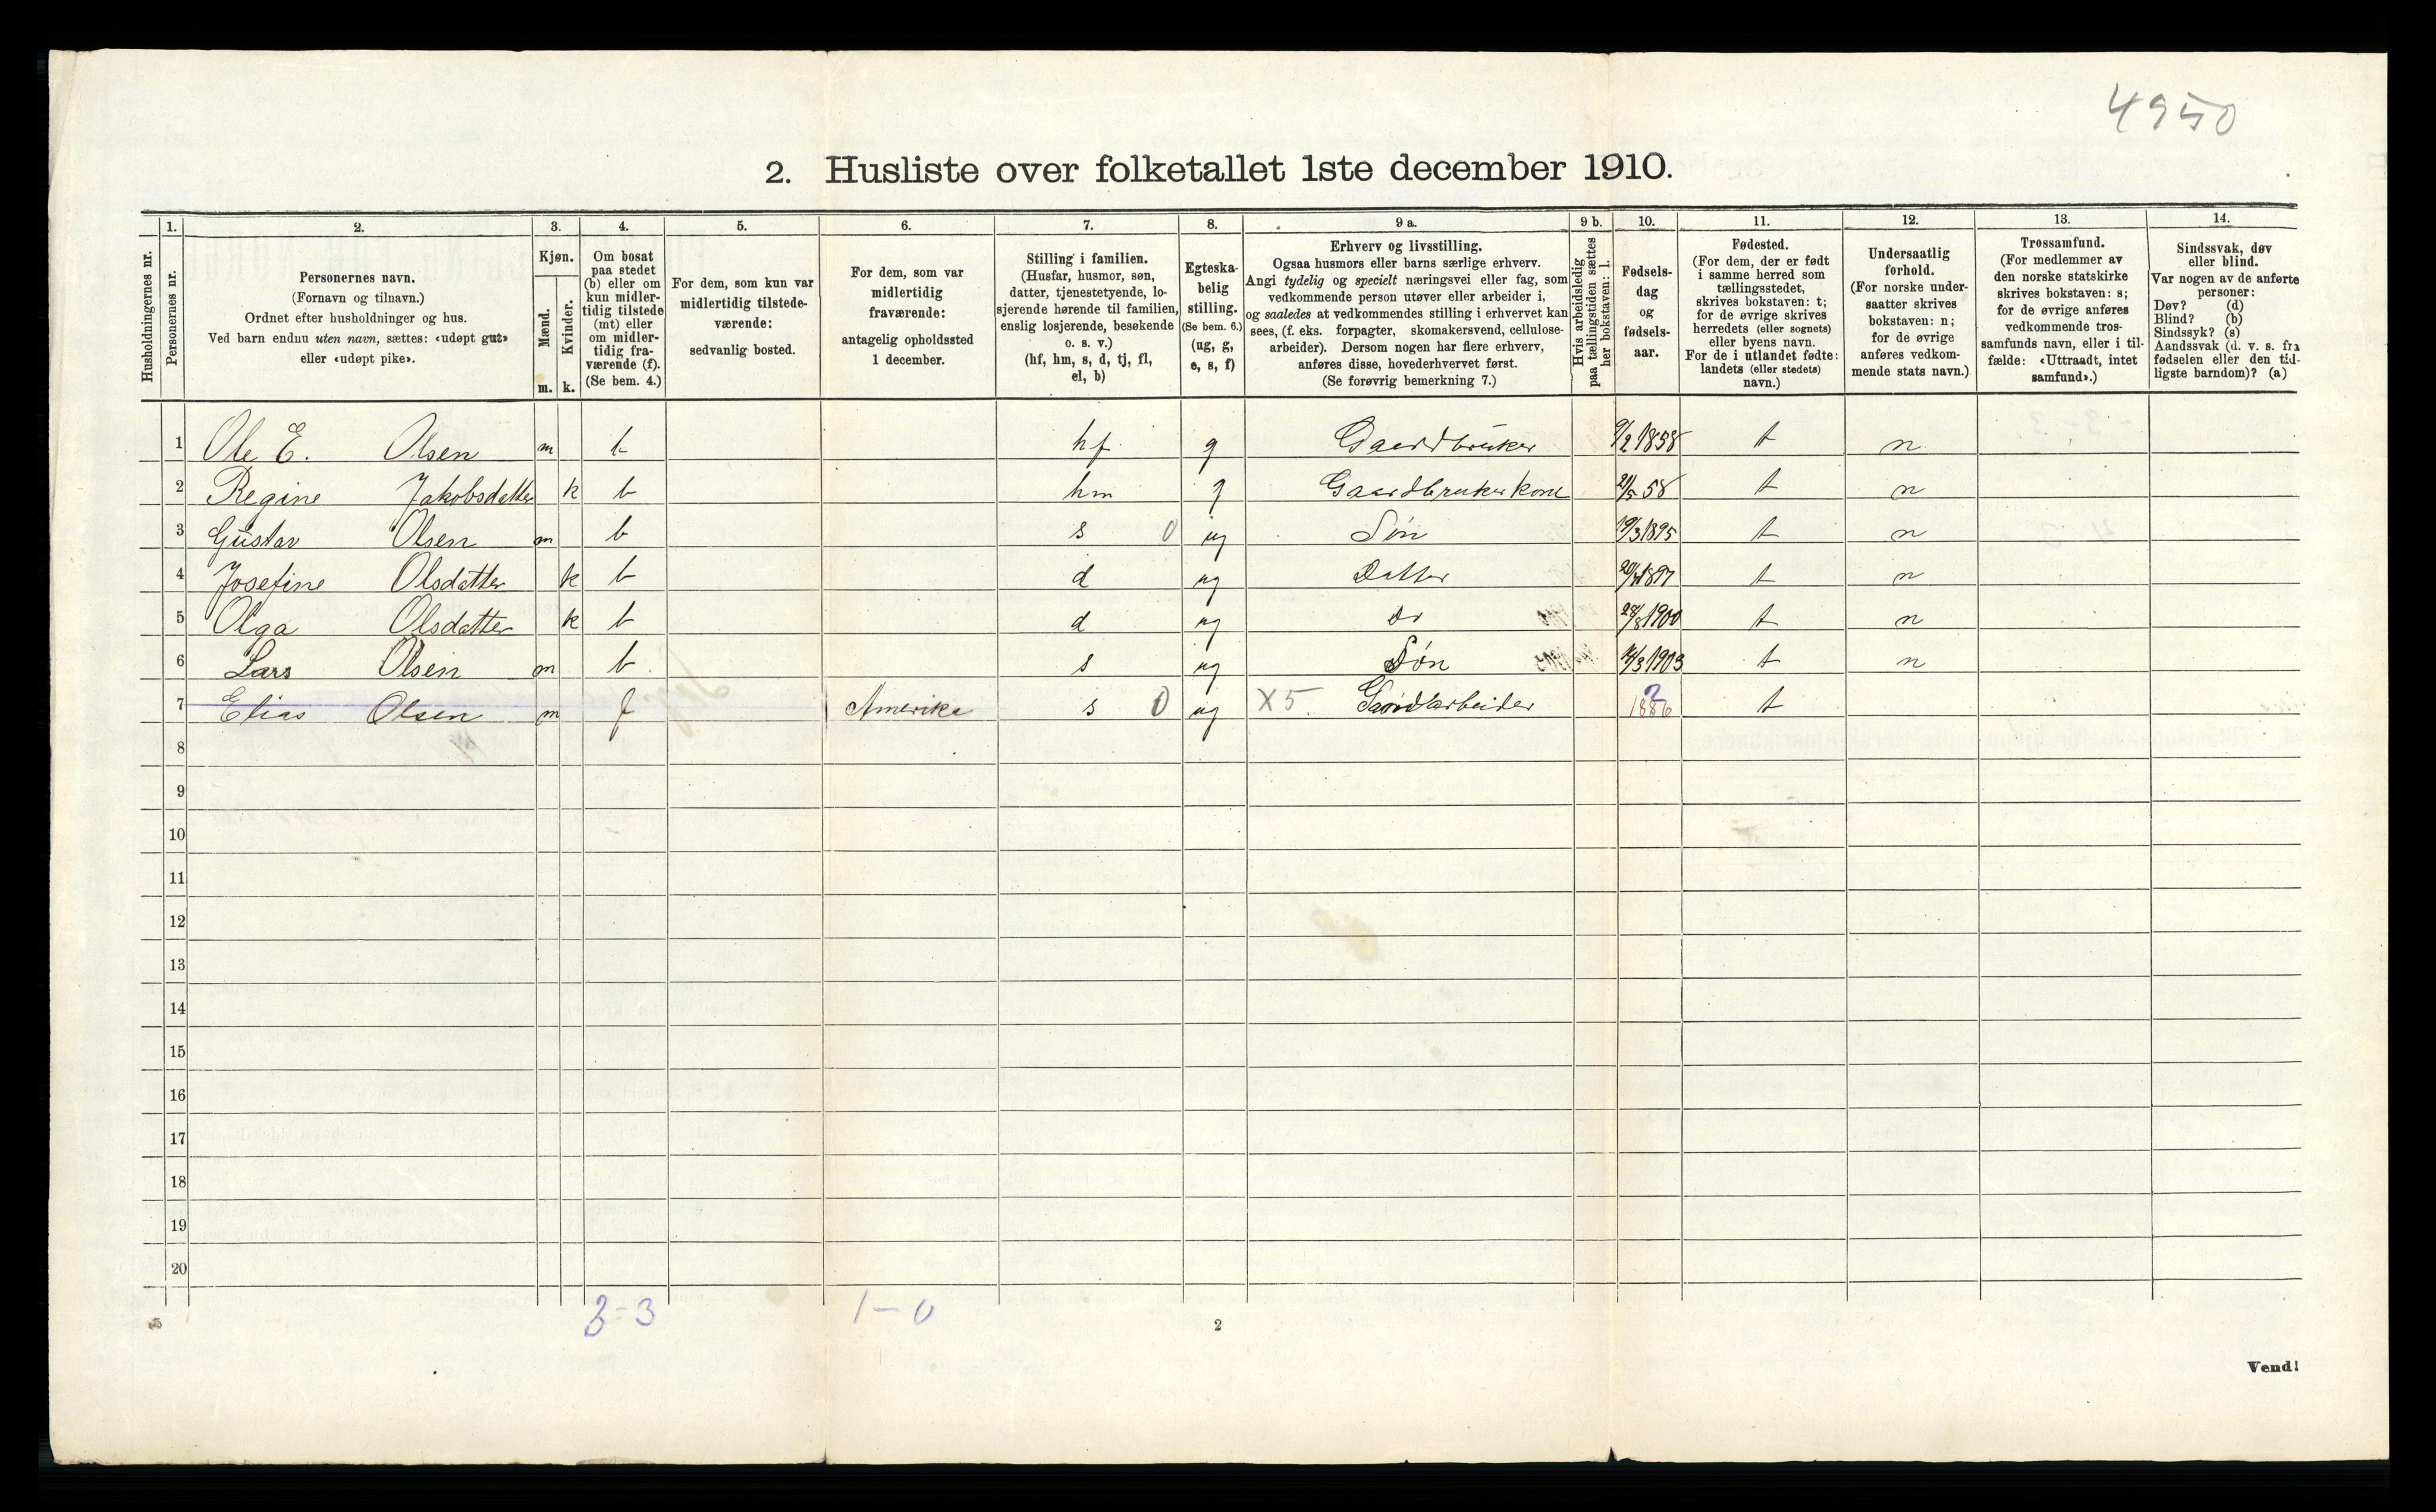 4950
2. Husliste over folketallet 1ste december 1910.
Husholdningernes nr.
1.
Personernes nr.
2.
Personernes navn.
(Fornavn og tilnavn.)
Ordnet efter husholdninger og hus.
Ved barn endnu uten navn, sættes: «udøpt gut»
eller «udøpt pike».
3.
Kjøn.
Mænd.
m.
Kvinder.
k.
4.
Om bosat
paa stedet
(b) eller om
kun midler-
tidig tilstede
(mt) eller
om midler-
tidig fra-
værende (f).
(Se bem. 4.)
5.
For dem, som kun var
midlertidig tilstede-
værende:
sedvanlig bosted.
6.
For dem, som var
midlertidig
fraværende:
antagelig opholdssted
1 december.
7.
Stilling i familien.
(Husfar, husmor, søn,
datter, tjenestetyende, lo-
sjerende hørende til familien,
enslig losjerende, besøkende
o. s. v.)
(hf, hm, s, d, tj, fl,
el, b)
8.
Egteska-
belig
stilling.
(Se bem. 6.)
(ug, g,
e, s, f)
9 a.
Erhverv og livsstilling.
Ogsaa husmors eller barns særlige erhverv.
Angi tydelig og specielt næringsvei eller fag, som
vedkommende person utøver eller arbeider i,
og saaledes at vedkommendes stilling i erhvervet kan
sees, (f. eks. forpagter, skomakersvend, cellulose-
arbeider). Dersom nogen har flere erhverv,
anføres disse, hovederhvervet først.
(Se forøvrig bemerkning 7.)
9 b.
Hvis arbeidsledig
paa tællingstiden sættes
her bokstaven: l.
10.
Fødsels-
dag
og
fødsels-
aar.
11.
Fødested.
(For dem, der er født
i samme herred som
tællingsstedet,
skrives bokstaven: t;
for de øvrige skrives
herredets (eller sognets)
eller byens navn.
For de i utlandet fødte:
landets (eller stedets)
navn.)
12.
Undersaatlig
forhold.
(For norske under-
saatter skrives
bokstaven: n;
for de øvrige
anføres vedkom-
mende stats navn.)
13.
Trossamfund.
(For medlemmer av
den norske statskirke
skrives bokstaven: s;
for de øvrige anføres
vedkommende tros-
samfunds navn, eller i til-
fælde: «Uttraadt, intet
samfund».)
14.
Sindssvak, døv
eller blind.
Var nogen av de anførte
personer:
Døv? (d)
Blind? (b)
Sindssyk? (s)
Aandssvak (d. v. s. fra
fødselen eller den tid-
ligste barndom)? (a)
1 Ole E. Olsen m b hf g Gaardbruker 9/2 1858 t n
2 Regine Jakobsdatter k b hm g Gaardbrukerkone 21/5 58 t n
3 Gustav Olsen m b s 0 ug Søn 19/3 1895 t n
4 Josefine Olsdatter k b d ug Datter 1897 t n
5 Olga Olsdatter k b d ug Do 28/8 1900 t n
6 Lars Olsen m b s ug Søn 1903 t n
7 Elias Olsen m f Amerika s 0 ug X5 Gaardarbeider 1886 t
8
9
10
11
12
13
14
15
16
17
18
19
20
3-3
1-0
2
Vend!